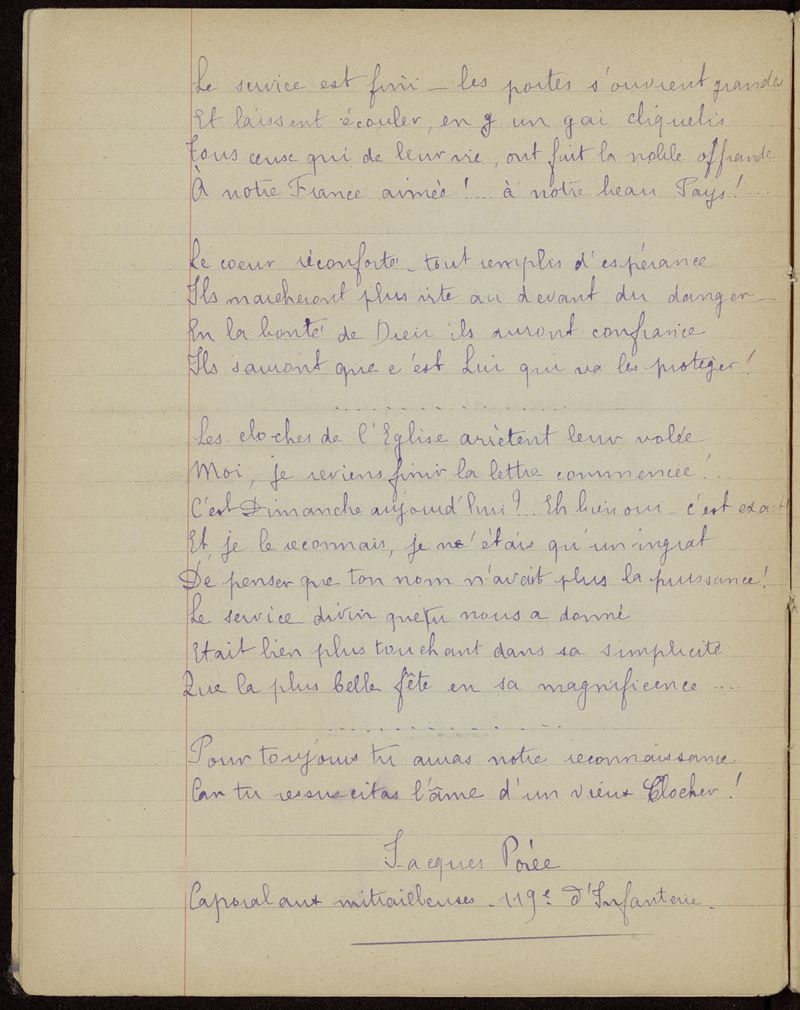 Le service est fini _ les portes s'ouvrent grandes
Et laissent écouler, en g un gai cliquetis
Tous ceux qui de leur vie, ont fait la noble offrande
À notre France aimée !... à notre beau Pays !...
Le coeur réconforté _ tout remplis d'espérance
Ils marcheront plus vite au devant du danger _
En la bonté de Dieu ils auront confiance
Ils sauront que c'est Lui qui va les protéger !
....................
Les cloches de l'Eglise arrêtent leur volée
Moi, je reviens finir la lettre commencée !...
C'est Dimanche aujourd'hui ?... Eh bien oui _ c'est exact !
Et je le reconnais, je ne'étais qu'un ingrat
De penser que ton nom n'avait plus la puissance !
Le service divin que tu nous a donné
Etait bien plus touchant dans sa simplicité
Que la plus belle fête en sa magnificence ....
....................
Pour toujours tu auras notre reconnaissance
Car tu ressuscitas l'âme d'un vieux Clocher !
Jacques Porée
Caporal aux mitrailleuses _ 119e d'Infanterie _